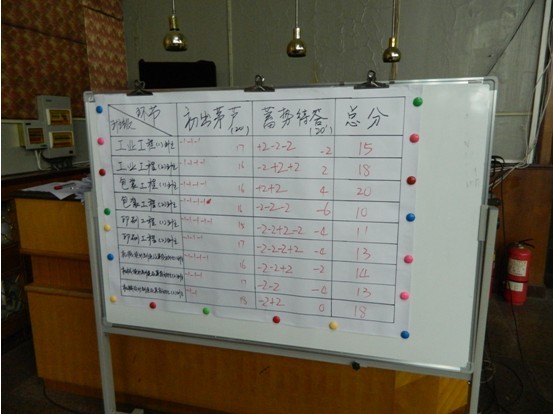 环节 初出茅芦 (20') 蓄势待答 (20') 总分
班级
工业工程(1)班 -1-1-1 17 +2-2-2 -2 15
工业工程(2)班 -1-1-1-1 16 -2+2+2 2 18
包装工程(1)班 -1-1-1-1 16 +2+2 4 20
包装工程(2)班 -1-1-1-1 16 -2-2-2 -6 10
印刷工程(1)班 15 -2-2+2-2 -4 11
印刷工程(2)班 17 -2-2-2+2 -4 13
16 -2-2+2 -2 14
17 -2-2 -4 13
18 -2+2 0 18